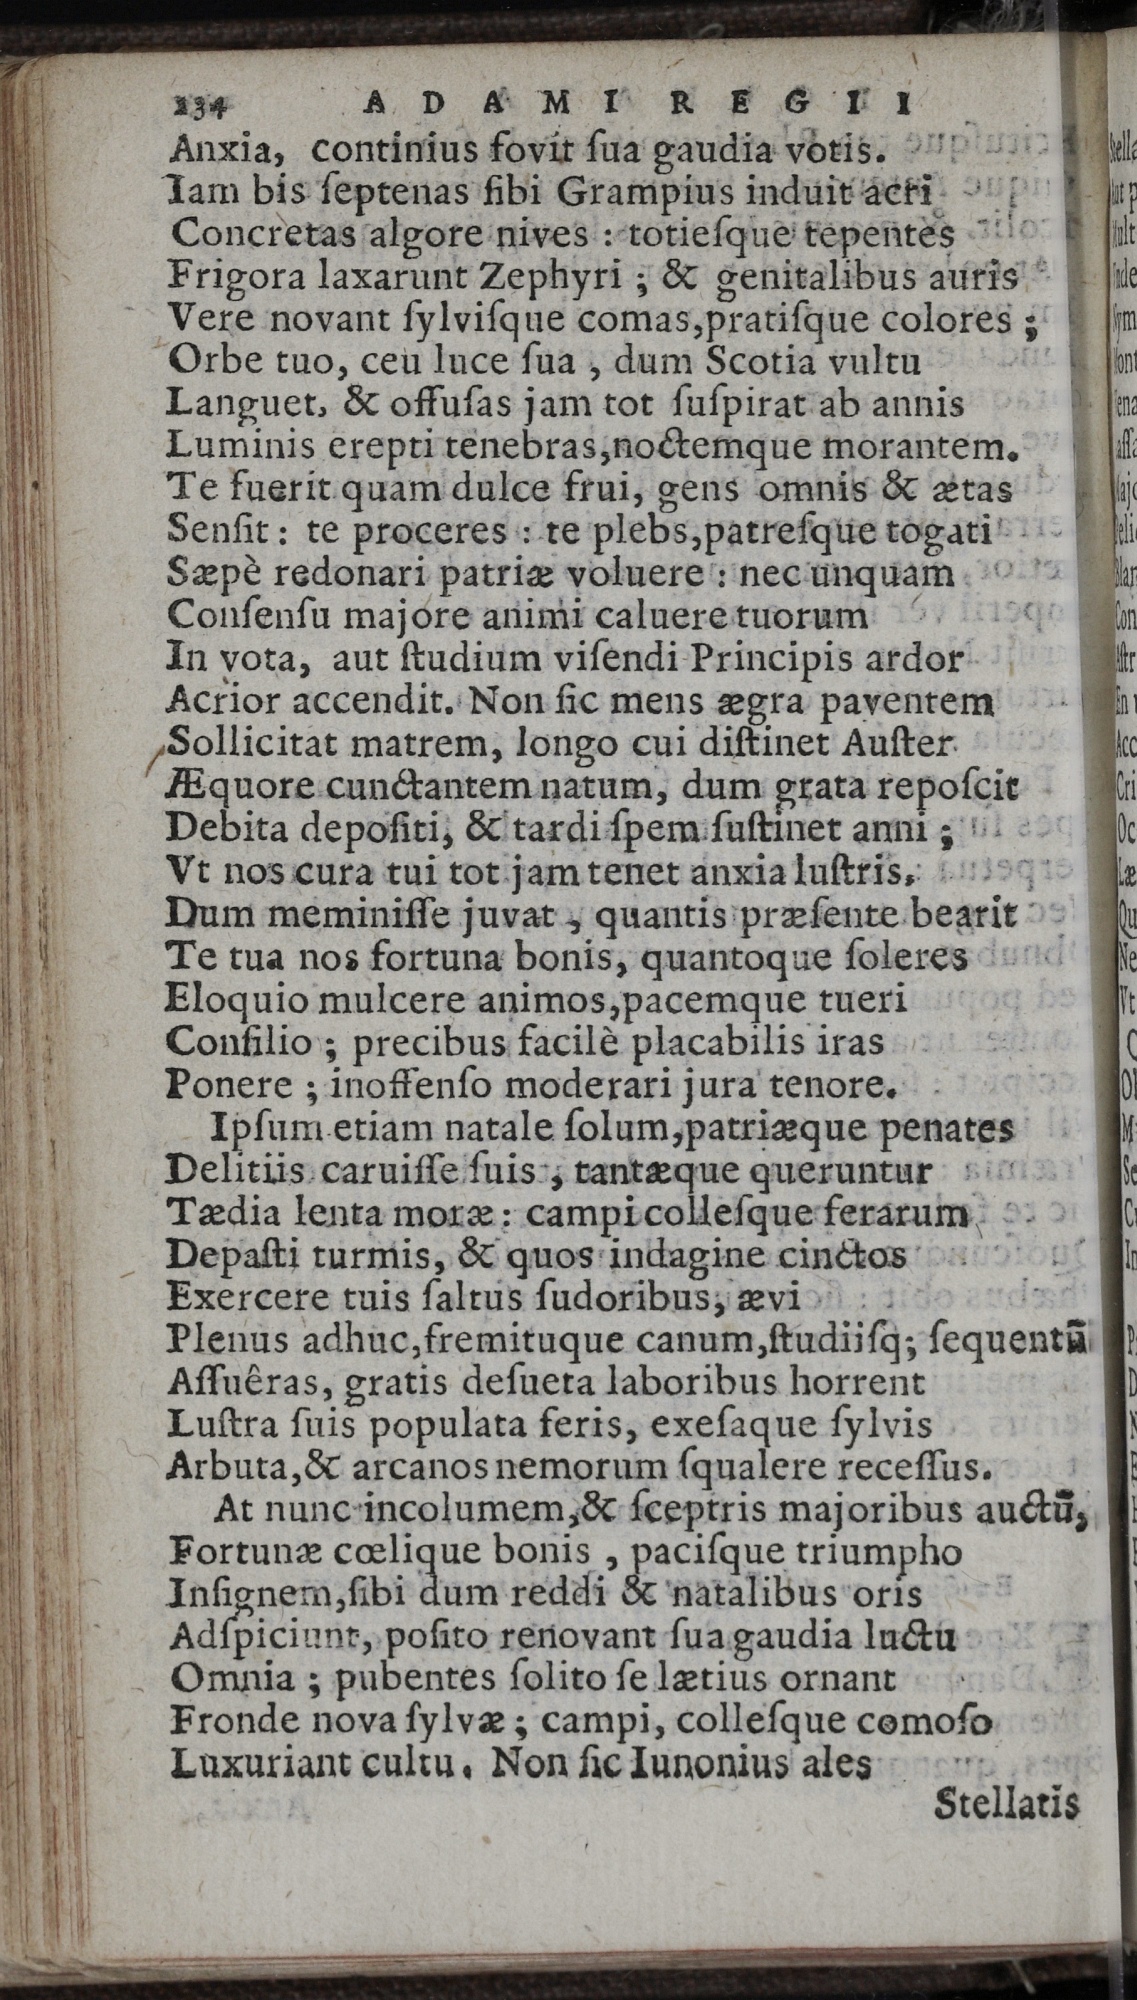 234 ADAMI REGII
Anxia, continius fovit ſua gaudia votis.
Iam bis ſeptenas ſibi Grampius induit acri
Concretas algore nives : totieſque tepentes
Frigora laxarunt Zephyri ; & genitalibus auris
Vere novant ſylviſque comas,pratiſque colores ;
Orbe tuo, ceu luce ſua , dum Scotia vultu
Languet, & offuſas jam tot ſuſpirat ab annis
Luminis erepti tenebras,noctemque morantem.
Te fuerit quam dulce frui, gens omnis & ætas
Senſit : te proceres : te plebs,patreſque togati
Sæpè redonari patriæ voluere : nec unquam
Conſenſu majore animi caluere tuorum
In vota, aut ſtudium viſendi Principis ardor
Acrior accendit. Non ſic mens ægra paventem
Sollicitat matrem, longo cui diſtinet Auſter
Æquore cunctantem natum, dum grata repoſcit
Debita depoſiti, & tardi ſpem ſuſtinet anni ;
Vt nos cura tui tot jam tenet anxia luſtris,
Dum meminiſſe juvat , quantis præſente bearit
Te tua nos fortuna bonis, quantoque ſoleres
Eloquio mulcere animos,pacemque tueri
Conſilio ; precibus facilè placabilis iras
Ponere ; inoffenſo moderari jura tenore.
Ipſum etiam natale ſolum,patriæque penates
Delitiis caruiſſe ſuis , tantæque queruntur
Tædia lenta moræ : campi colleſque ferarum
Depaſti turmis, & quos indagine cinctos
Exercere tuis ſaltus ſudoribus, ævi
Plenus adhuc,fremituque canum,ſtudiiſq; ſequentū
Aſſuêras, gratis deſueta laboribus horrent
Luſtra ſuis populata feris, exeſaque ſylvis
Arbuta,& arcanos nemorum ſqualere receſſus.
At nunc incolumem,& ſceptris majoribus auctū,
Fortunæ cœlique bonis , paciſque triumpho
Inſignem,ſibi dum reddi & natalibus oris
Adſpiciunt, poſito renovant ſua gaudia luctu
Omnia ; pubentes ſolito ſe lætius ornant
Fronde nova ſylvæ ; campi, colleſque comoſo
Luxuriant cultu. Non ſic Iunonius ales
Stellatis